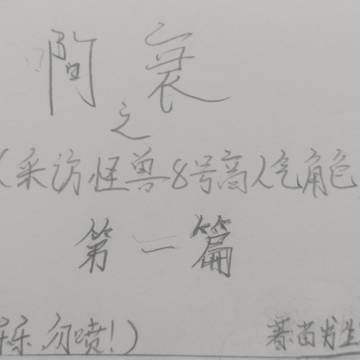 阿衰
之
(采访怪兽8号高人气角色
第一篇
乐,勿喷!)